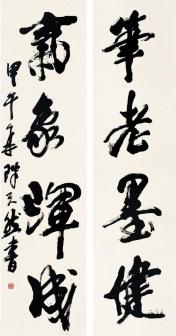 筆老墨健
氣象渾成
甲午年陳天然書